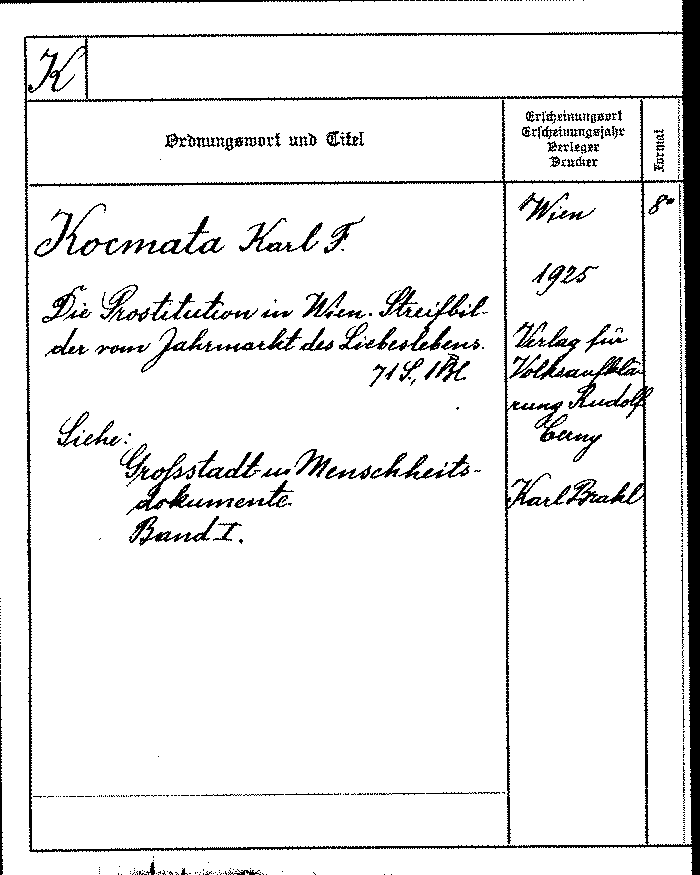 K
Ordnungswort und Titel
Erscheinungsort
Erscheinungsjahr
Verleger
Drucker
Format
Kocmata Karl F.
Die Prostitution in Wien. Streifbil-
der vom Jahrmarkt des Liebeslebens.
71 S., 1 Bl.
Siehe:
Großstadt- u. Menschheits-
dokumente.
Band I.
Wien
1925
Verlag für
Volksaufklä-
rung Rudolf
Cerny
Karl Brakl
8°